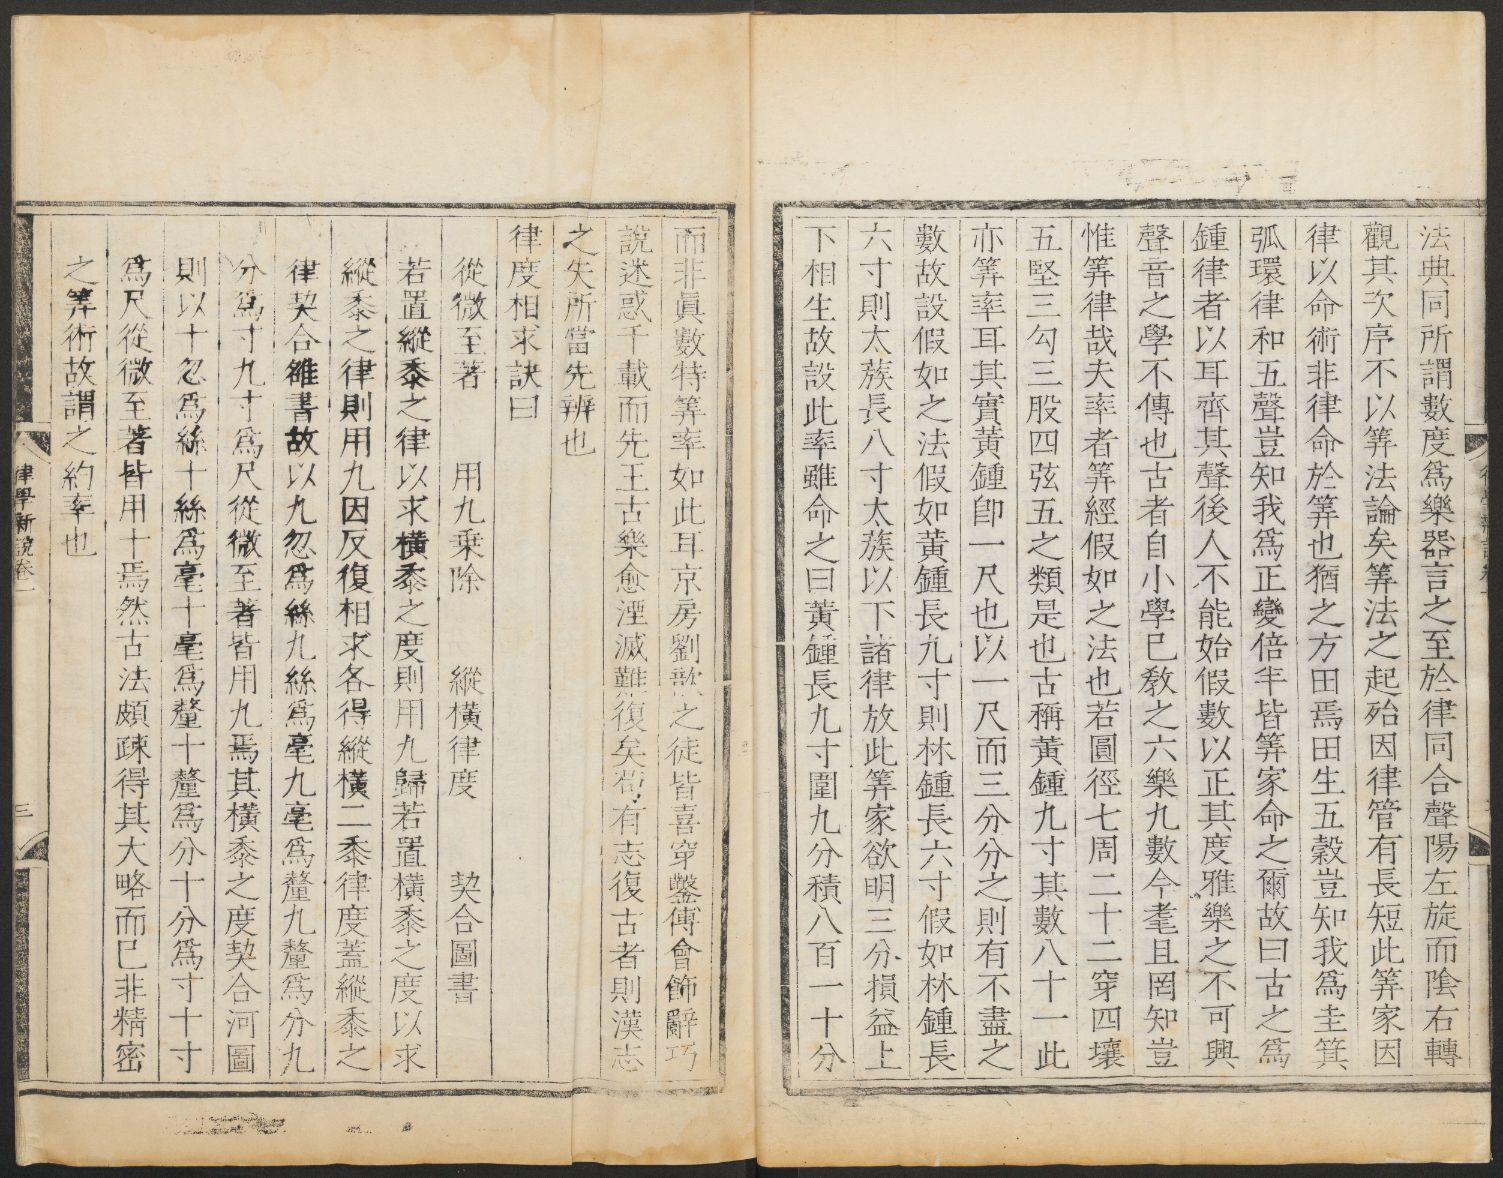 法典同所謂數度爲樂器言之至於律同合聲陽左旋而陰右轉
觀其次序不以筭法論矣筭法之起殆因律管有長短此筭家因
律以命術非律命於筭也猶之方田焉田生五穀豈知我爲圭箕
弧環律和五聲豈知我爲正變倍半皆筭家命之爾故曰古之爲
鍾律者以耳齊其聲後人不能始假數以正其度雅樂之不可興
聲音之學不傳也古者自小學已敎之六樂九數今耄且罔知豈
惟筭律哉夫率者筭經假如之法也若圓徑七周二十二穿四壤
五堅三勾三股四弦五之類是也古稱黃鍾九寸其數八十一此
亦筭率耳其實黃鍾卽一尺也以一尺而三分分之則有不盡之
數故設假如之法假如黃鍾長九寸則林鍾長六寸假如林鍾長
六寸則太蔟長八寸太蔟以下諸律放此筭家欲明三分損益上
下相生故設此率雖命之曰黃鍾長九寸圍九分積八百一十分
而非眞數特筭率如此耳京房劉歆之徒皆喜穿鑿傅會飾辭巧
說迷惑千載而先王古樂愈湮滅難復矣苟有志復古者則漢志
之失所當先辨也
律度相求訣曰
從微至著 用九乗除 縱橫律度 契合圖書
若置縱黍之律以求橫黍之度則用九歸若置橫黍之度以求
縱黍之律則用九因反復相求各得縱橫二黍律度蓋縱黍之
律契合雒書故以九忽爲絲九絲爲毫九毫爲釐九釐爲分九
分爲寸九寸爲尺從微至著皆用九焉其橫黍之度契合河圖
則以十忽爲絲十絲爲毫十毫爲釐十釐爲分十分爲寸十寸
爲尺從微至著皆用十焉然古法頗疎得其大略而已非精密
之筭術故謂之約率也
律學新說卷一
三